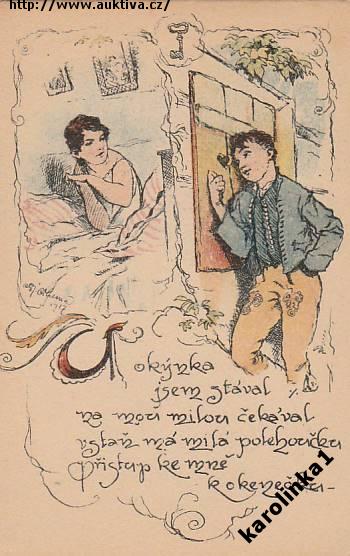 http://www.auktiva.cz/
U okýnka
jsem stával
na moři milou čekával
vstaň má milá polehoučku
přistup ke mně
k okenečku
karolinka1